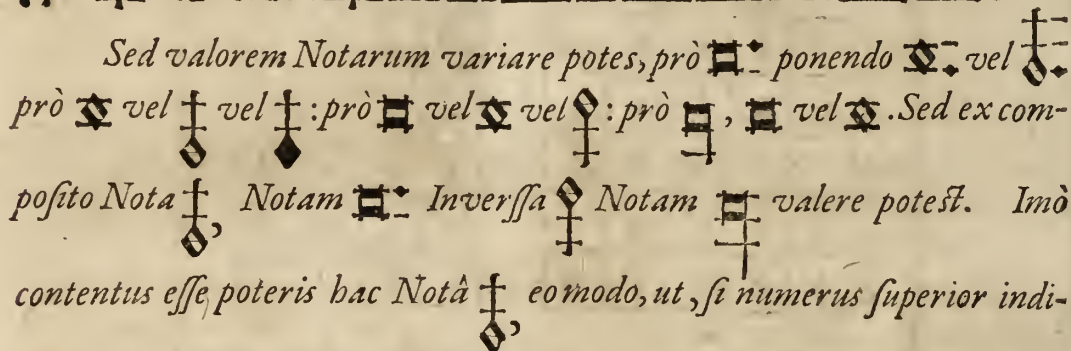 Sed valorem Notarum variare potes, prò ponendo vel
prò vel vel : prò vel vel : prò , vel . Sed ex com-
poſito Nota , Notam Inverſſa Notam valere poteſt. Imò
contentus eſſe poteris hac Notâ , eo modo, ut, ſi numerus ſuperior indi-